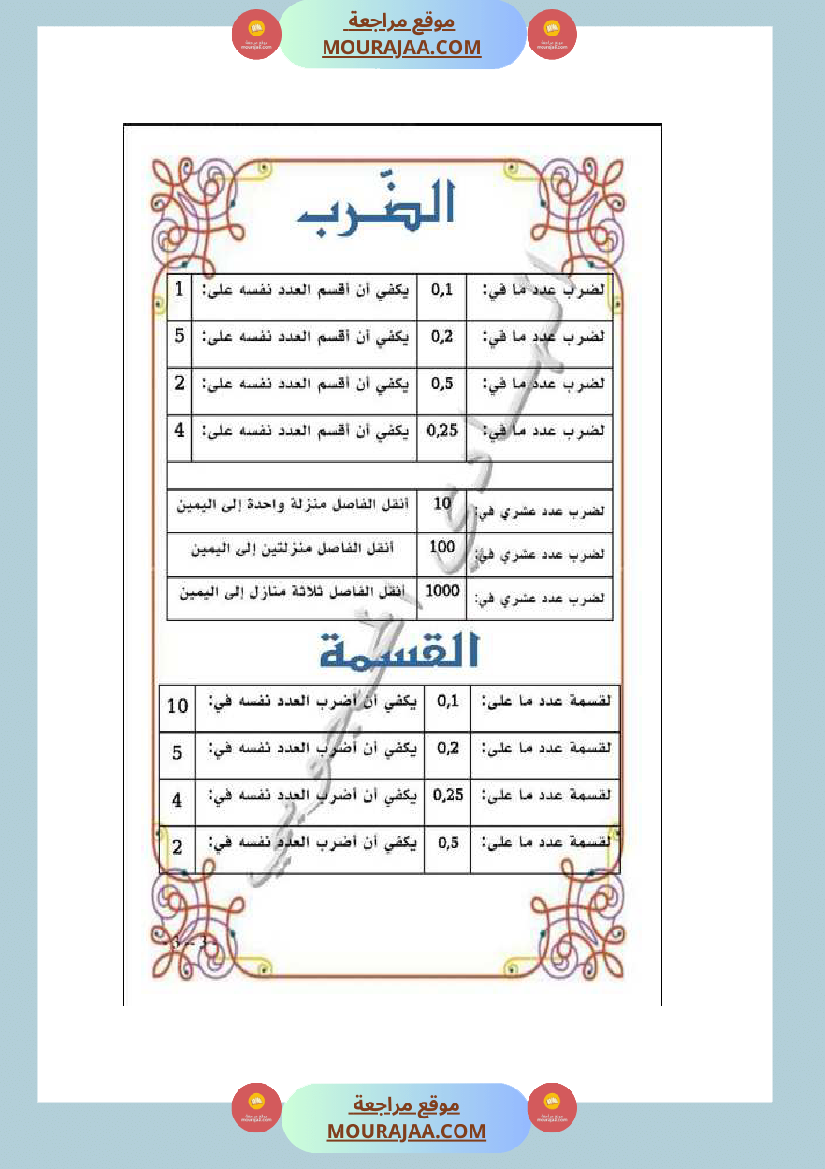 موقع مراجعة
MOURAJAA.COM
الضّرب
لضرب عدد ما في: 0,1 يكفي أن أقسم العدد نفسه على: 1
لضرب عدد ما في: 0,2 يكفي أن أقسم العدد نفسه على: 5
لضرب عدد ما في: 0,5 يكفي أن أقسم العدد نفسه على: 2
لضرب عدد ما في: 0,25 يكفي أن أقسم العدد نفسه على: 4
لضرب عدد عشري في: 10 أنقل الفاصل منزلة واحدة إلى اليمين
لضرب عدد عشري في: 100 أنقل الفاصل منزلتين إلى اليمين
لضرب عدد عشري في: 1000 أنقل الفاصل ثلاثة منازل إلى اليمين
القسمة
لقسمة عدد ما على: 0,1 يكفي أن أضرب العدد نفسه في: 10
لقسمة عدد ما على: 0,2 يكفي أن أضرب العدد نفسه في: 5
لقسمة عدد ما على: 0,25 يكفي أن أضرب العدد نفسه في: 4
لقسمة عدد ما على: 0,5 يكفي أن أضرب العدد نفسه في: 2
موقع مراجعة
MOURAJAA.COM